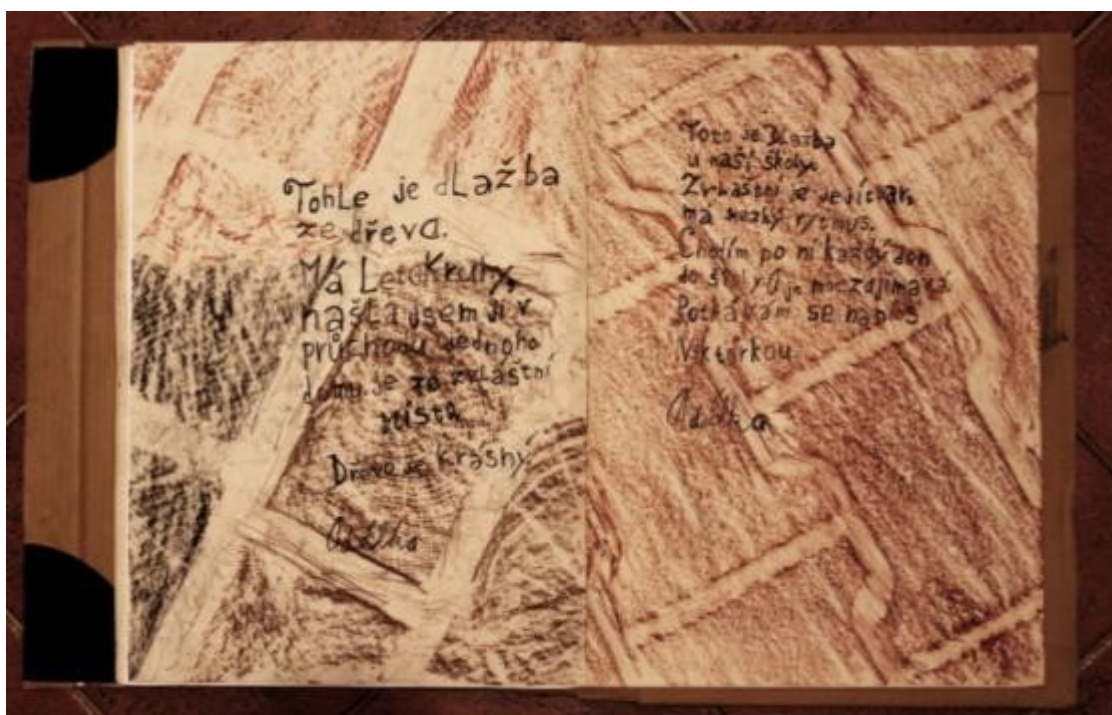 Tohle je dLažba
ze dřeva.
Má LetoKruhy,
našla jsem ji v
průchodu jednoho
domu je to zvláštní
místo
Dřevo je Krásný.
Adélka
Toto je DLažba
u naší školy.
ZvLáštní je její tvar,
má hezký rytmus.
Chodím po ní každý den
do školy a je moc zajímavá.
Potkávám se na ní s
Viktorkou.
Adélka